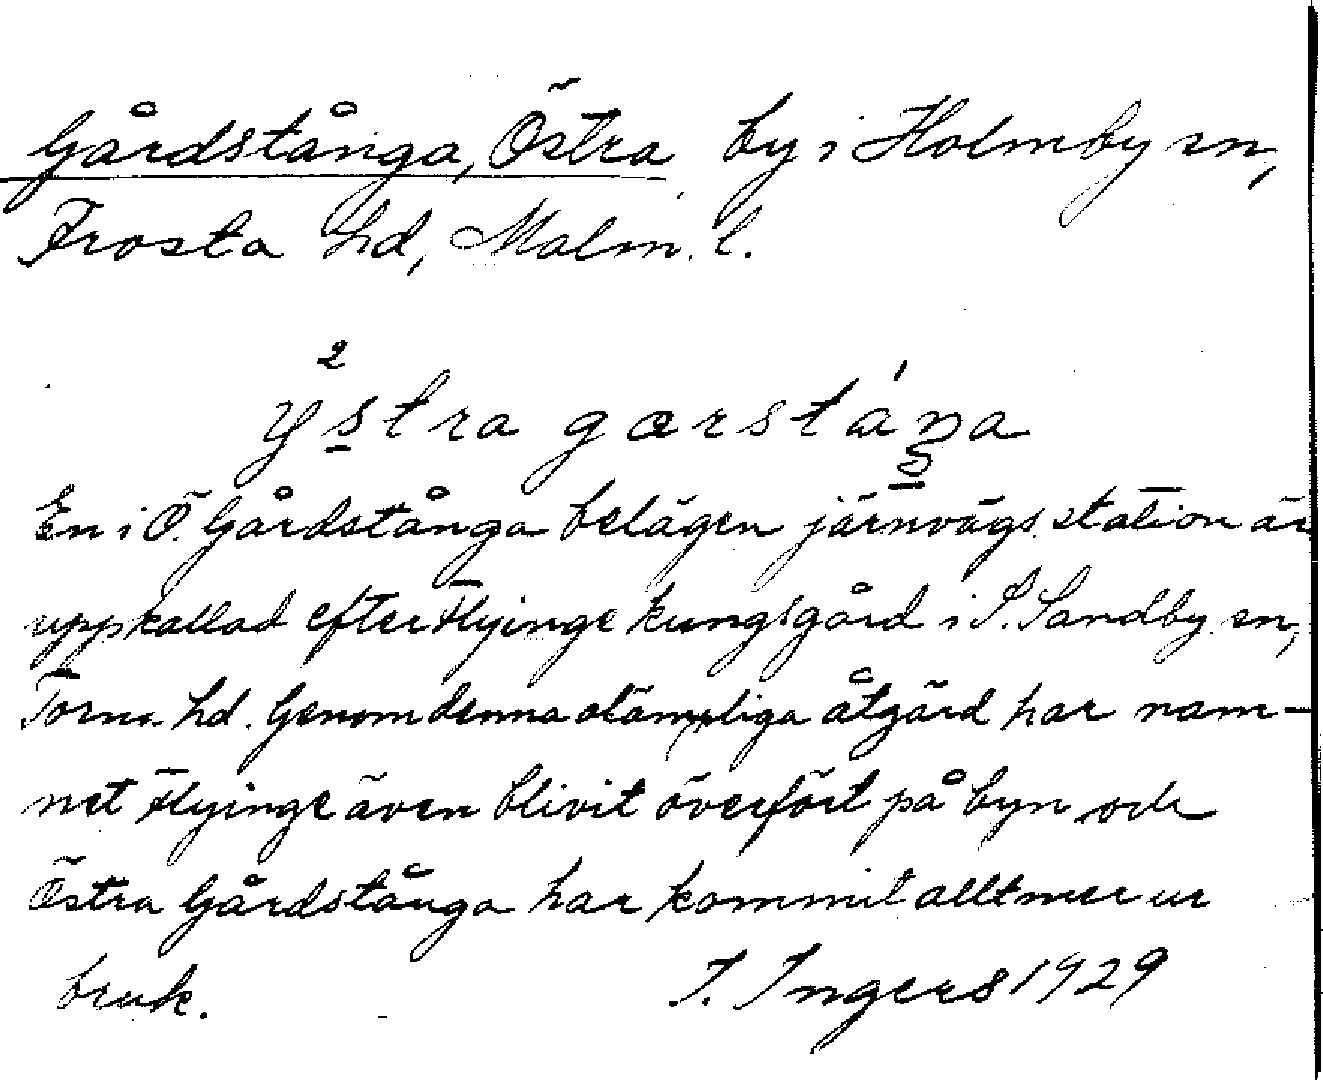 Gårdstånga, Östra by i Holmby sn,
Frosta hd, Malm. l.
2
ystra garstáŋa
En i Ö. Gårdstånga belägen järnvägsstation är
uppkallad efter Flyinge kungsgård i S. Sandby sn,
Torna hd. Genom denna olämpliga åtgärd har nam-
net Flyinge även blivit överfört på byn och
Östra Gårdstånga har kommit alltmer ur
bruk. I. Ingers 1929